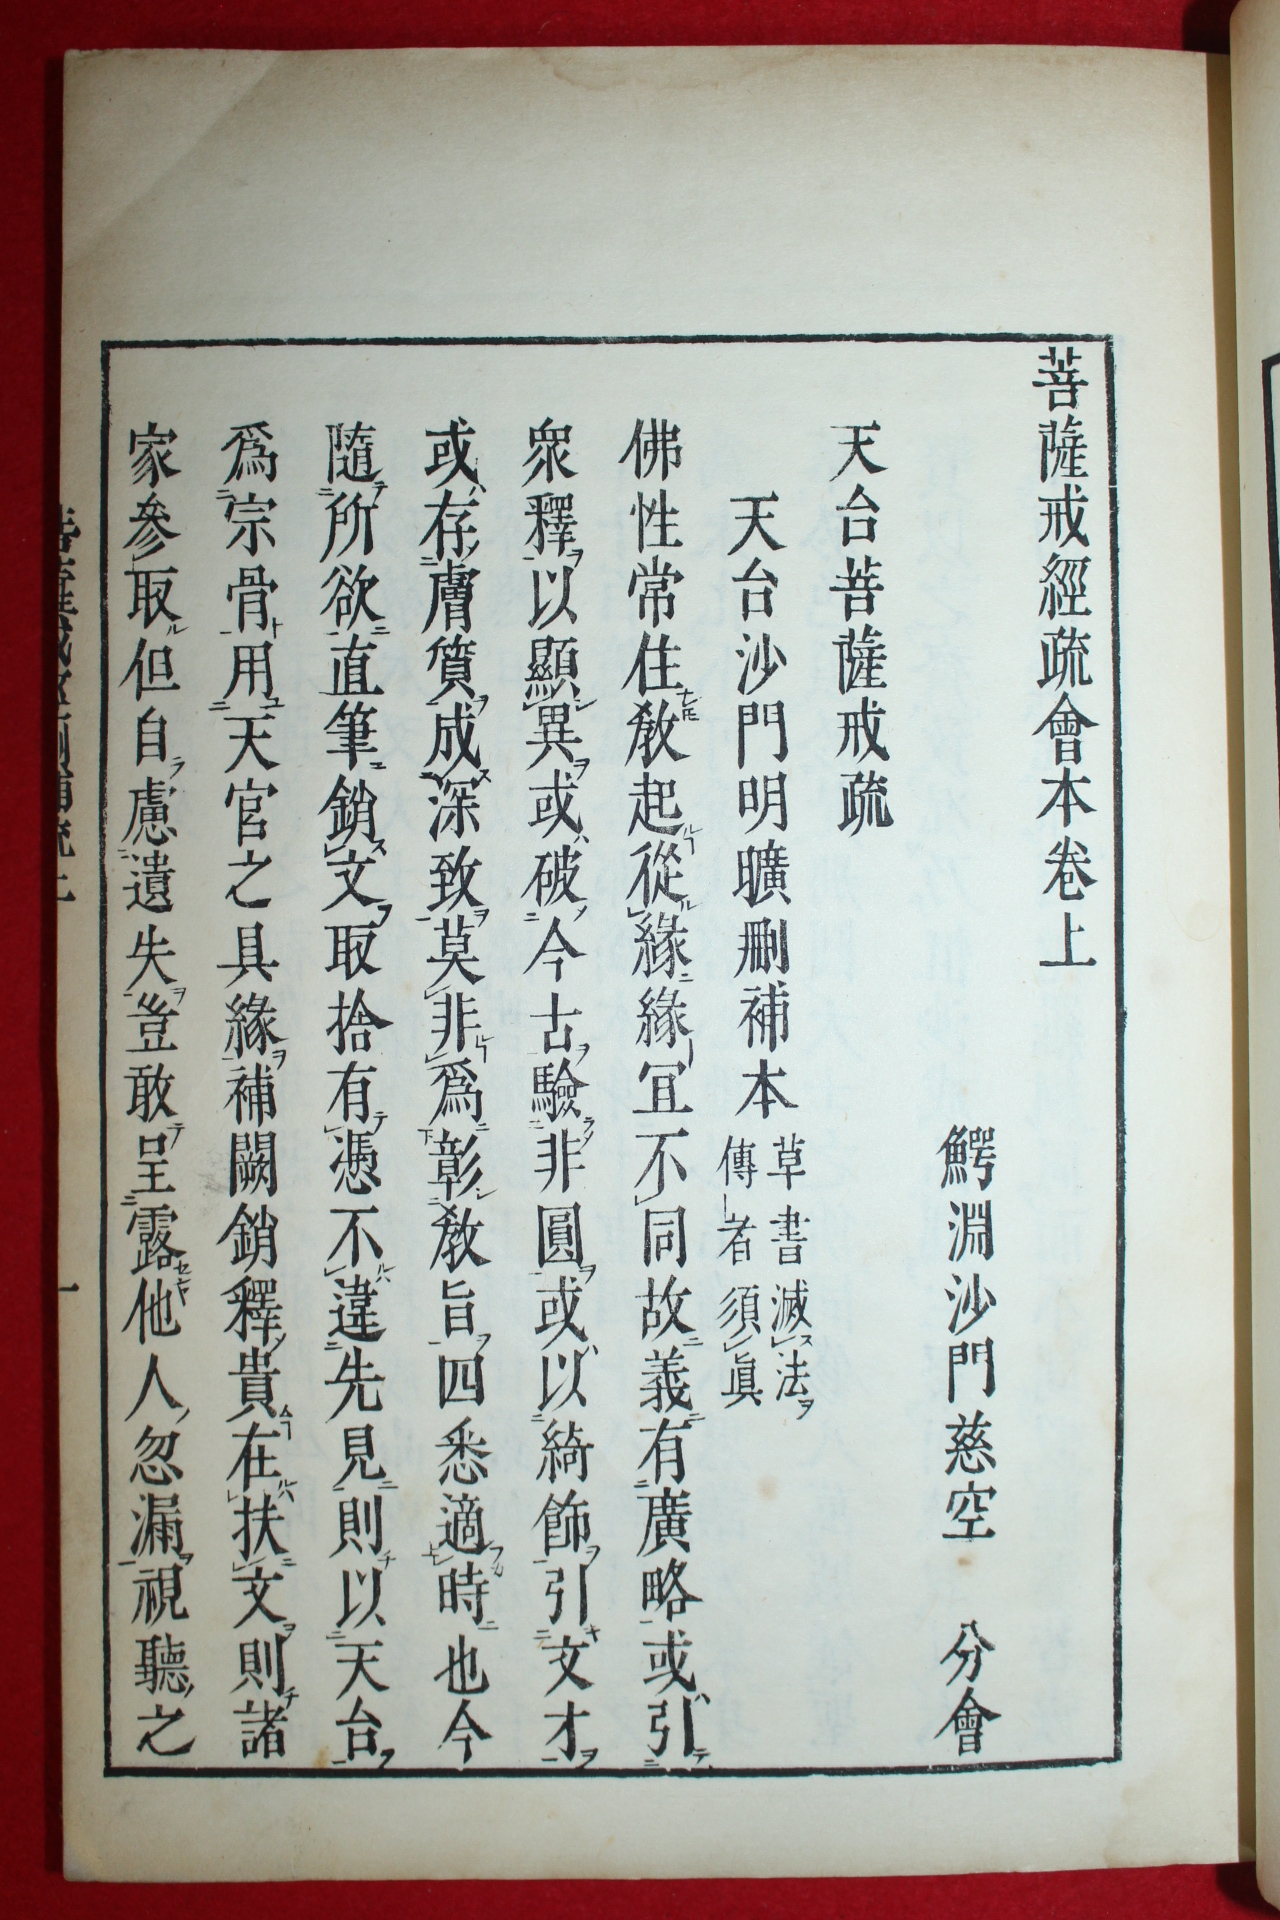 菩薩戒經疏會本卷上
鰐淵沙門慈空　分會
天台菩薩戒疏
天台沙門明曠刪補本
草書滅法
傳者須眞
佛性常住敎起從緣緣冝不同故義有廣略或引
衆釋以顯異或破今古驗非圓或以綺飾引文才
或存膚質成深致莫非爲彰敎旨四悉適時也今
隨所欲直筆銷文取捨有憑不違先見則以天台
爲宗骨用天官之具緣補闕銷釋貴在扶文則諸
家參取但自慮遺失豈敢呈露他人忽漏視聽之
一